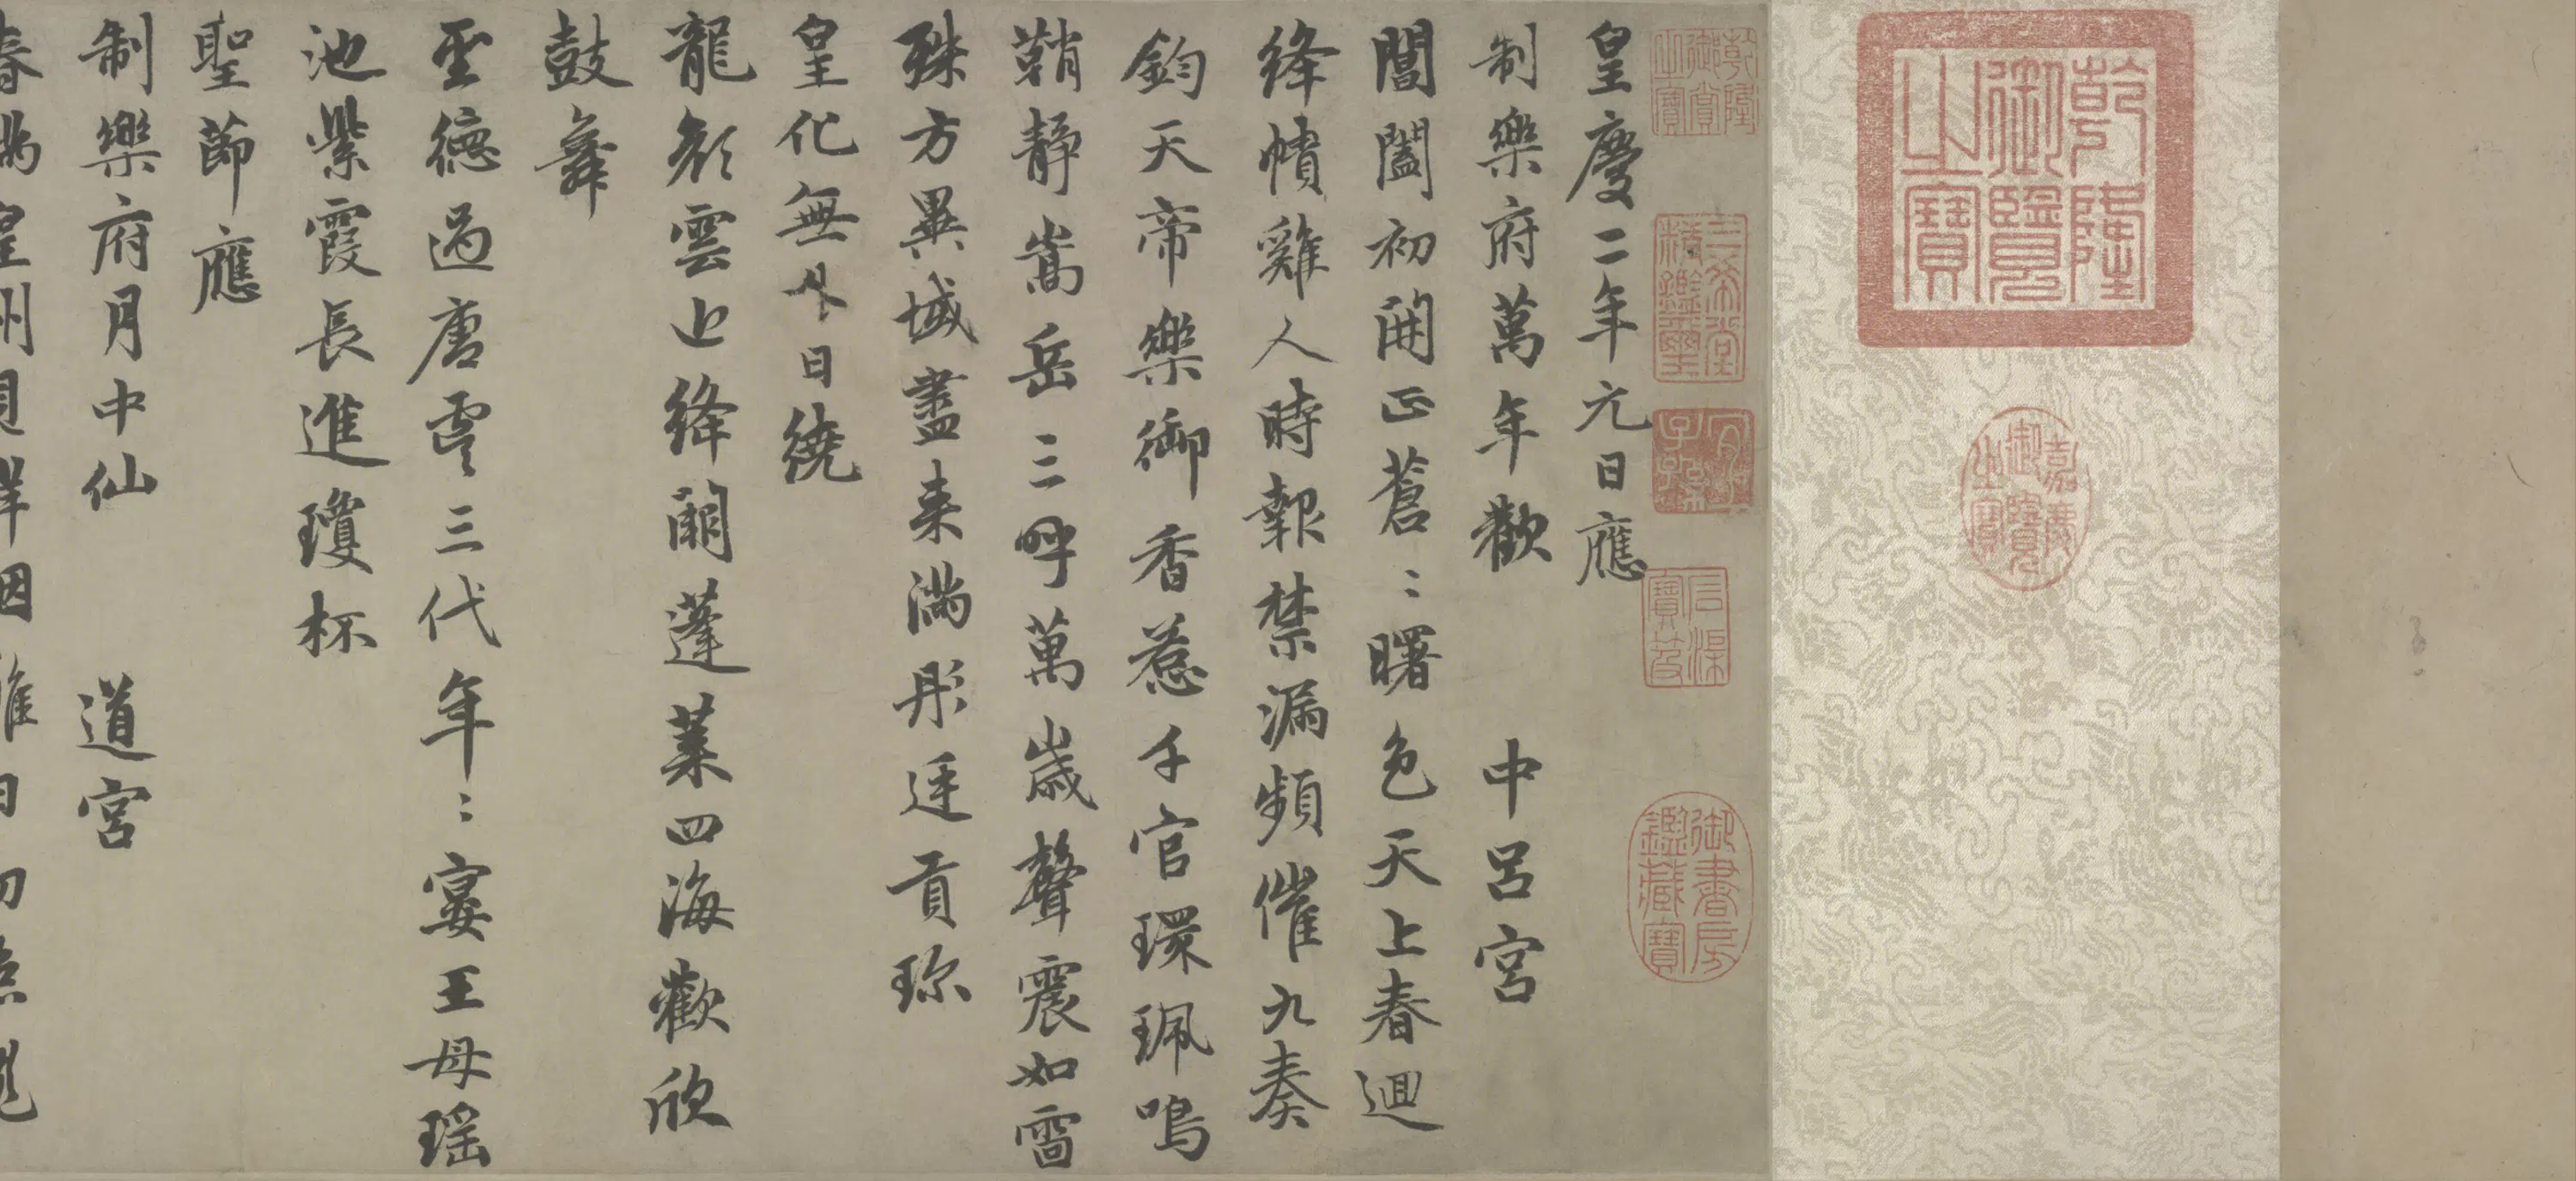 乾隆御覽之寶
嘉慶御覽之寶
乾隆御賞之寶
三希堂精鑑璽
宜子孫
御書房鑑藏寶
皇慶二年元日應
制樂府萬年歡 中呂宮
閶闔初開正蒼〻曙色天上春迴
絳幘雞人時報禁漏頻催九奏
鈞天帝樂御香惹千官環珮鳴
鞘靜嵩岳三呼萬歲聲震如雷
殊方異域盡来滿彤廷貢珎
皇化無外日繞
龍顏雲近絳闕蓬萊四海歡欣
鼓舞
聖德過唐虞三代年〻宴王母瑤
池紫霞長進瓊杯
聖節應
制樂府月中仙 道宮
春滿皇州